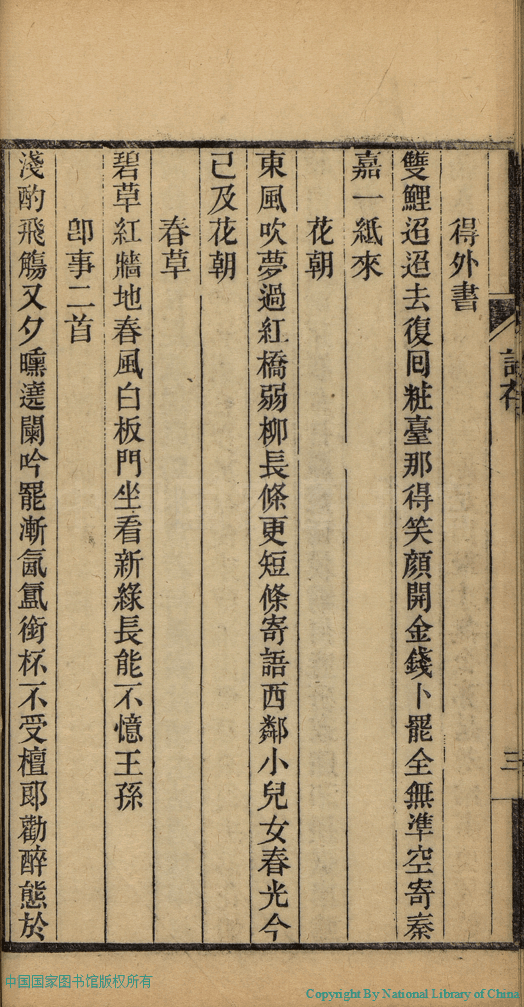 得外書
雙鯉迢迢去復囘粧臺那得笑顔開金錢卜罷全無準空寄秦
嘉一紙來
花朝
東風吹夢過紅橋弱柳長條更短條寄語西鄰小兒女春光今
已及花朝
春草
碧草紅牆地春風白板門坐看新綠長能不憶王孫
卽事二首
淺酌飛觴又夕曛遶闌吟罷漸氤氳銜杯不受檀郞勸醉態於
三
中国国家图书馆版权所有
Copyright By National Library of China